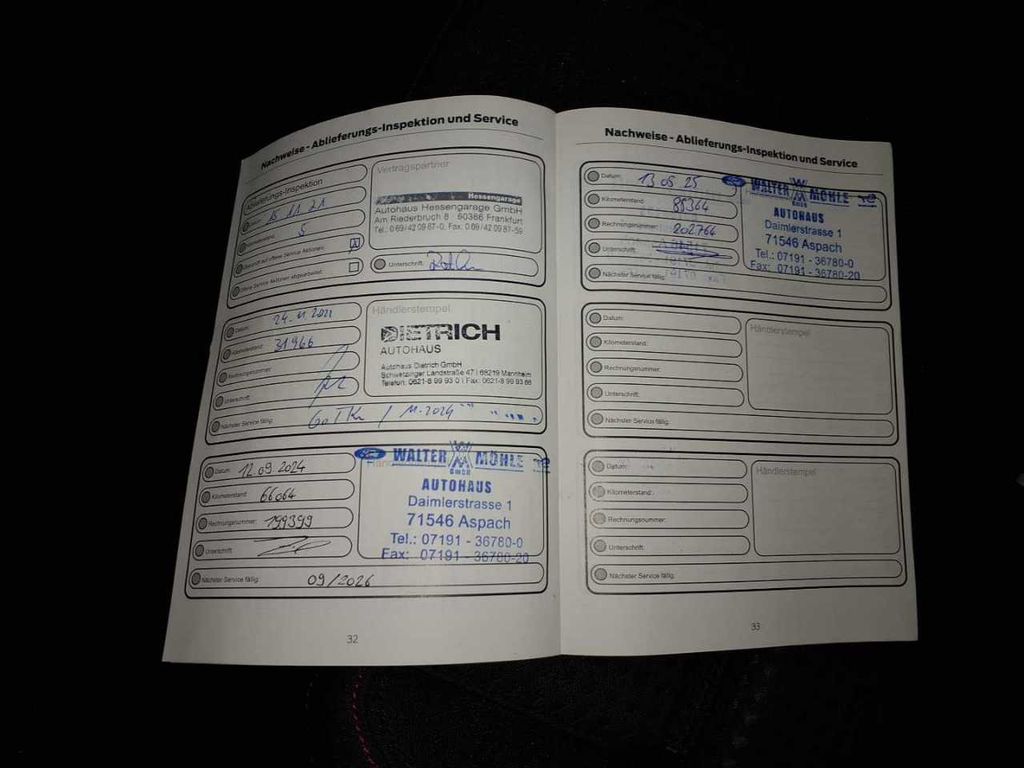 Nachweise - Ablieferungs-Inspektion und Service
Ablieferungs-Inspektion
15.11.21
5
Überprüft auf offene Service Aktionen:
Offene Service Aktionen abgearbeitet:
Vertragspartner
Hessengarage
Autohaus Hessengarage GmbH
Am Riederbruch 8 · 60386 Frankfurt
Tel.: 0 69/42 09 87-0, Fax: 0 69/42 09 87-59
Unterschrift:
Datum: 24.11.2021
Kilometerstand: 31966
Rechnungsnummer:
Unterschrift:
Händlerstempel
DIETRICH
AUTOHAUS
Autohaus Dietrich GmbH
Schwetzinger Landstraße 47 | 68219 Mannheim
Telefon: 0621-8 99 93 0 | Fax: 0621-8 99 93 66
Nächster Service fällig: 60TKm / 11.2024
Datum: 12.09.2024
Kilometerstand: 66064
Rechnungsnummer: 199399
Unterschrift:
Ford WALTER MÖHLE
GmbH
AUTOHAUS
Daimlerstrasse 1
71546 Aspach
Tel.: 07191 - 36780-0
Fax: 07191 - 36780-20
Nächster Service fällig: 09/2026
32
Nachweise - Ablieferungs-Inspektion und Service
Datum: 13 05 25
Kilometerstand: 85364
Rechnungsnummer: 202766
Unterschrift:
Nächster Service fällig:
Ford WALTER MÖHLE
GmbH
AUTOHAUS
Daimlerstrasse 1
71546 Aspach
Tel.: 07191 - 36780-0
Fax: 07191 - 36780-20
Datum:
Kilometerstand:
Rechnungsnummer:
Unterschrift:
Nächster Service fällig:
Händlerstempel
Datum:
Kilometerstand:
Rechnungsnummer:
Unterschrift:
Nächster Service fällig:
Händlerstempel
33